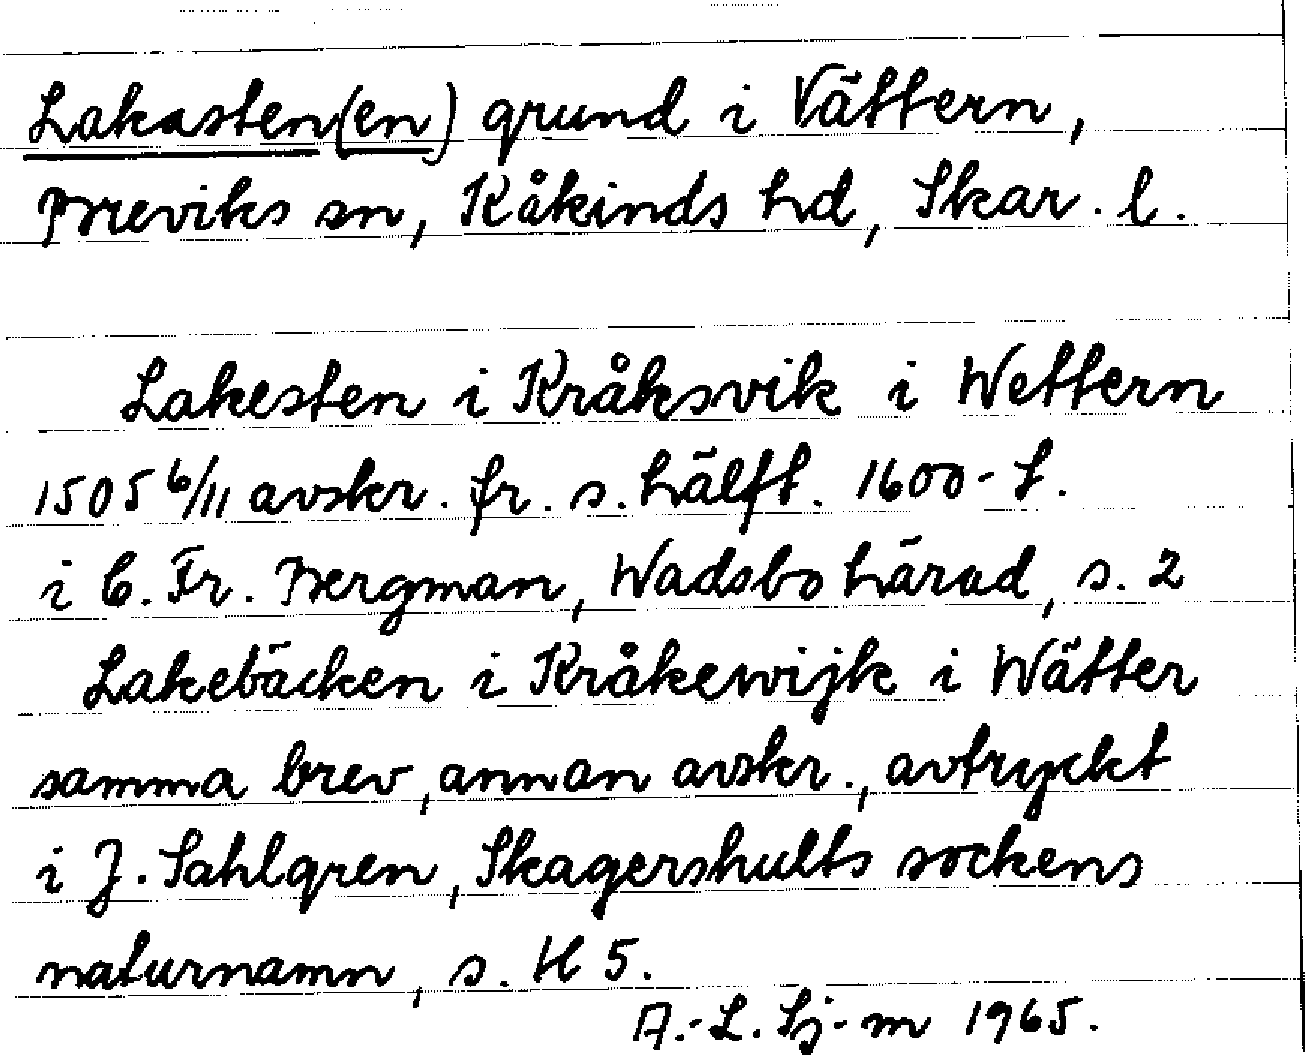 Lakasten(en) grund i Vättern,
Breviks sn, Kåkinds hd, Skar. l.
Lakesten i Kråksvik i Wettern
1505 6/11 avskr. fr. s. hälft. 1600-t.
i C. Fr. Bergman, Wadsbo härad, s. 2
Lakebäcken i Kråkewijk i Wätter
samma brev, annan avskr., avtryckt
i J. Sahlgren, Skagershults sockens
naturnamn, s. H 5.
A.-L. Sj-m 1965.